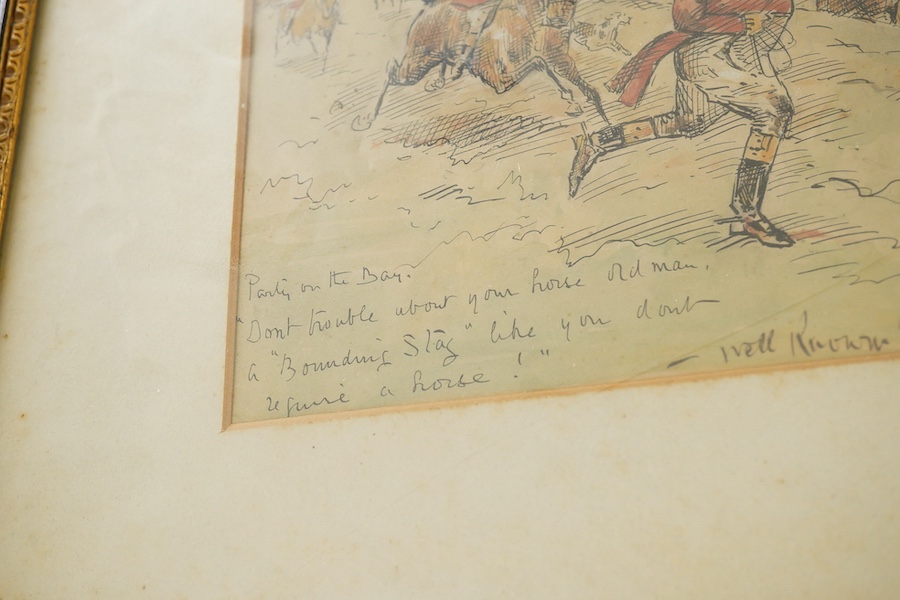 Party on the Bay.
"Dont trouble about your horse old man,
a "Bounding Stag" like you dont
require a horse!"
— Well Known